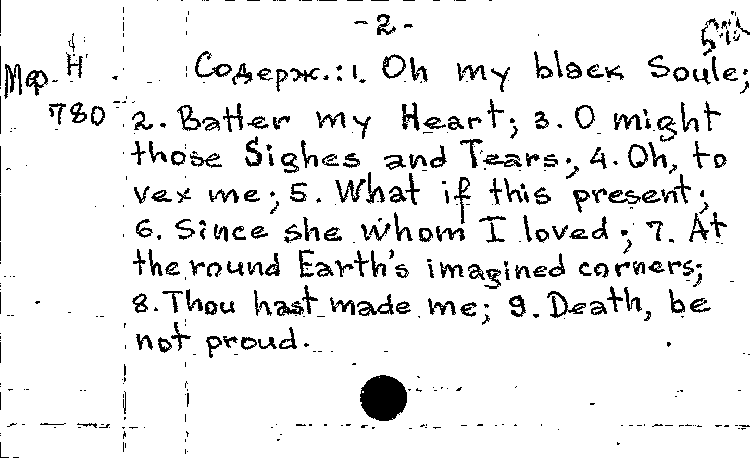 - 2 -
Н
Содерж.: 1. Oh my black Soule;
780 2. Batter my Heart; 3. O might
those Sighes and Tears; 4. Oh, to
vex me; 5. What if this present;
6. Since she whom I loved; 7. At
the round Earth's imagined corners;
8. Thou hast made me; 9. Death, be
not proud.